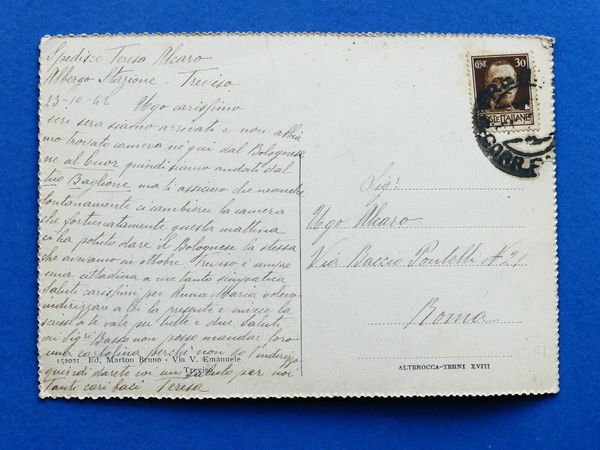 Spedisce Teresa Alcaro
Albergo Stazione - Treviso
23-10-42 Ugo carissimo
ieri sera siamo arrivati e non abbia
mo trovato camera ne qui dal Bolognese
ne al Cuor quindi siamo andati dal
tuo Baglione ma ti assicuro che neanche
lontanamente ci cambierei la camera
che fortunatamente questa mattina
ci ha potuto dare il Bolognese la stessa
che avevamo in ottobre Treviso è sempre
una cittadina a me tanto simpatica
Saluti carissimi per Anna Maria volevo
indirizzare a lei la presente e invece la
scusa te vale per tutte e due. Saluti
ai Sigri Basso non posso mandar loro
una cartolina perché non so l'indirizzo
quindi darete voi un saluto per noi
Tanti cari baci Teresa
151021 Ed. Marton Bruno - Via V. Emanuele
Treviso
CENT. 30
POSTE ITALIANE
CORR. E
Sig:
Ugo Alcaro
Via Baccio Pontelli N 21
Roma
ALTEROCCA-TERNI XVIII